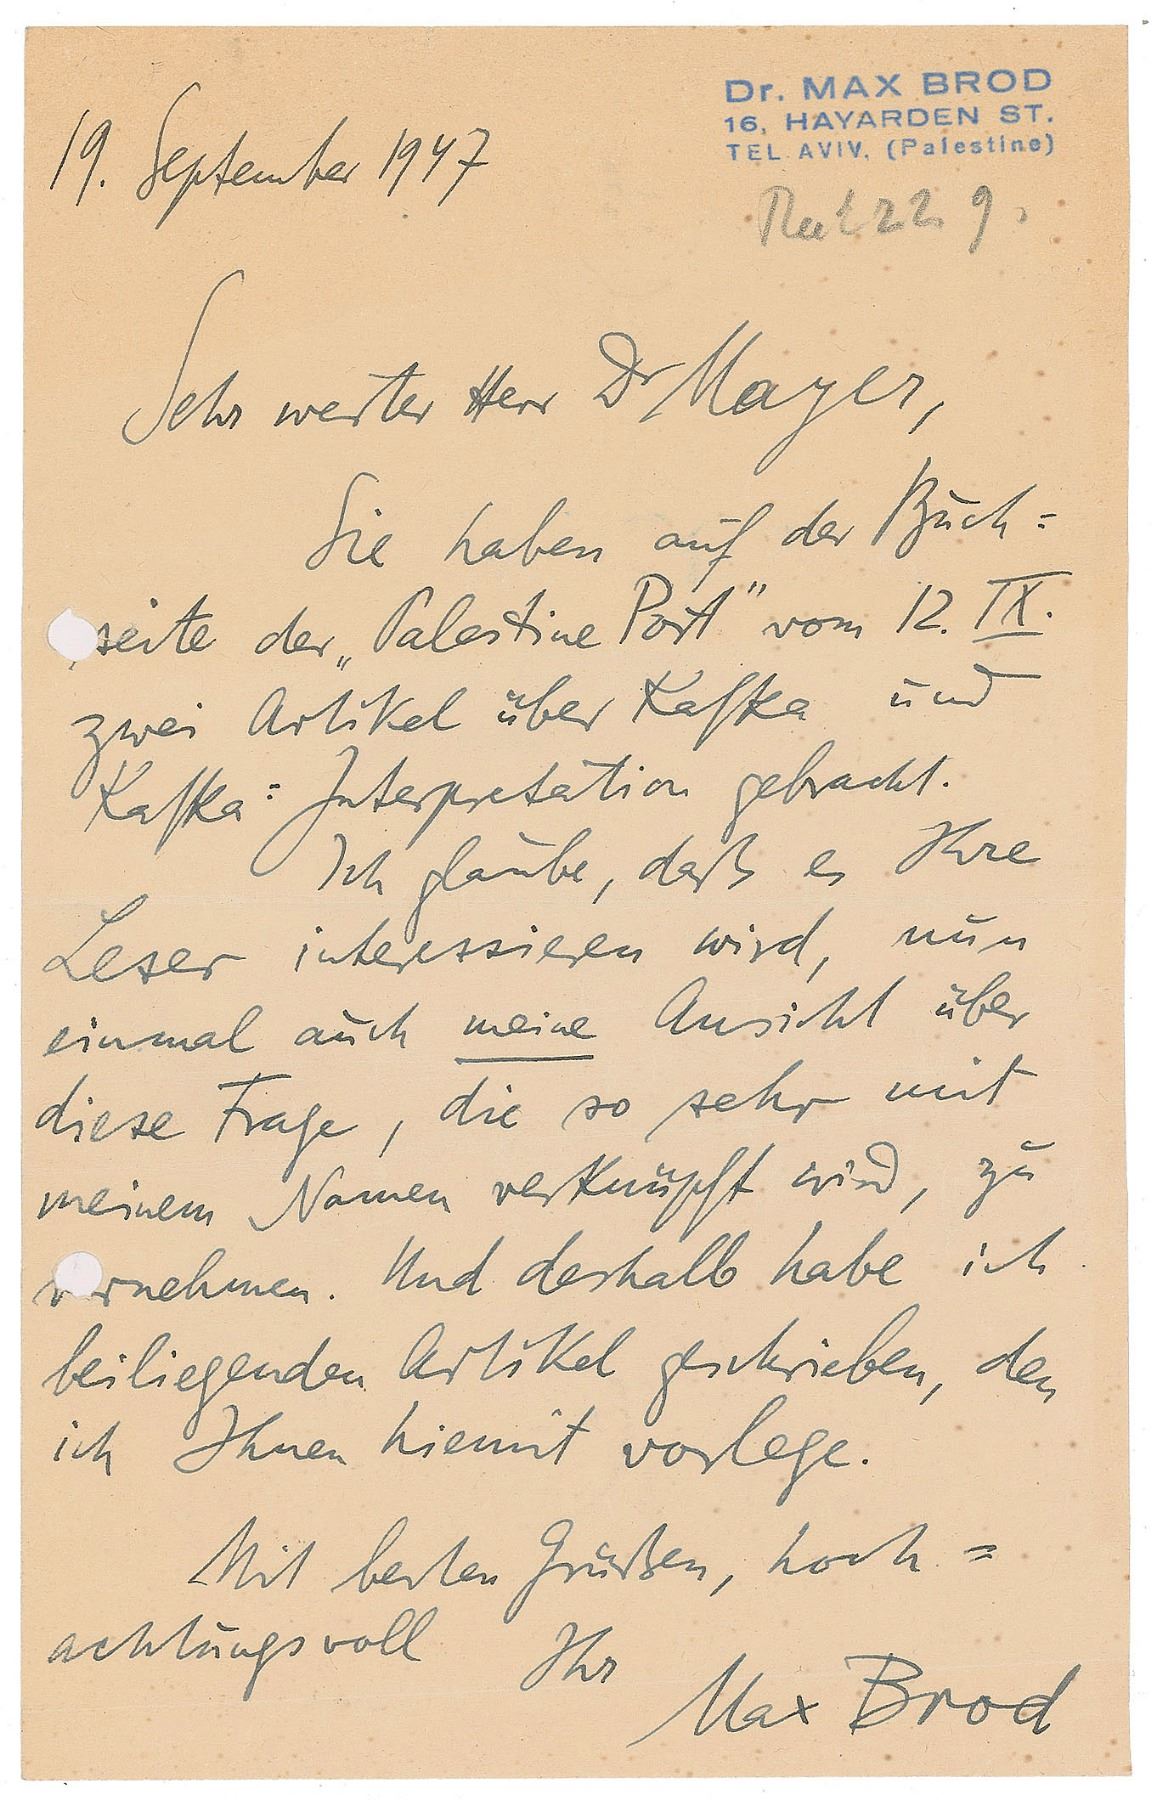 Dr. MAX BROD
16, HAYARDEN ST.
TEL AVIV, (Palestine)
19. September 1947
22 9.
Sehr werter Herr Dr Mayer,
Sie haben auf der Buch=
seite der „Palestine Post" vom 12. IX.
zwei Artikel über Kafka und
Kafka=Interpretation gebracht.
Ich glaube, daß es Ihre
Leser interessieren wird, nun
einmal auch meine Ansicht über
diese Frage, die so sehr mit
meinem Namen verknüpft wird, zu
vernehmen. Und deshalb habe ich
beiliegenden Artikel geschrieben, den
ich Ihnen hiemit vorlege.
Mit besten Grüßen, hoch=
achtungsvoll Ihr
Max Brod